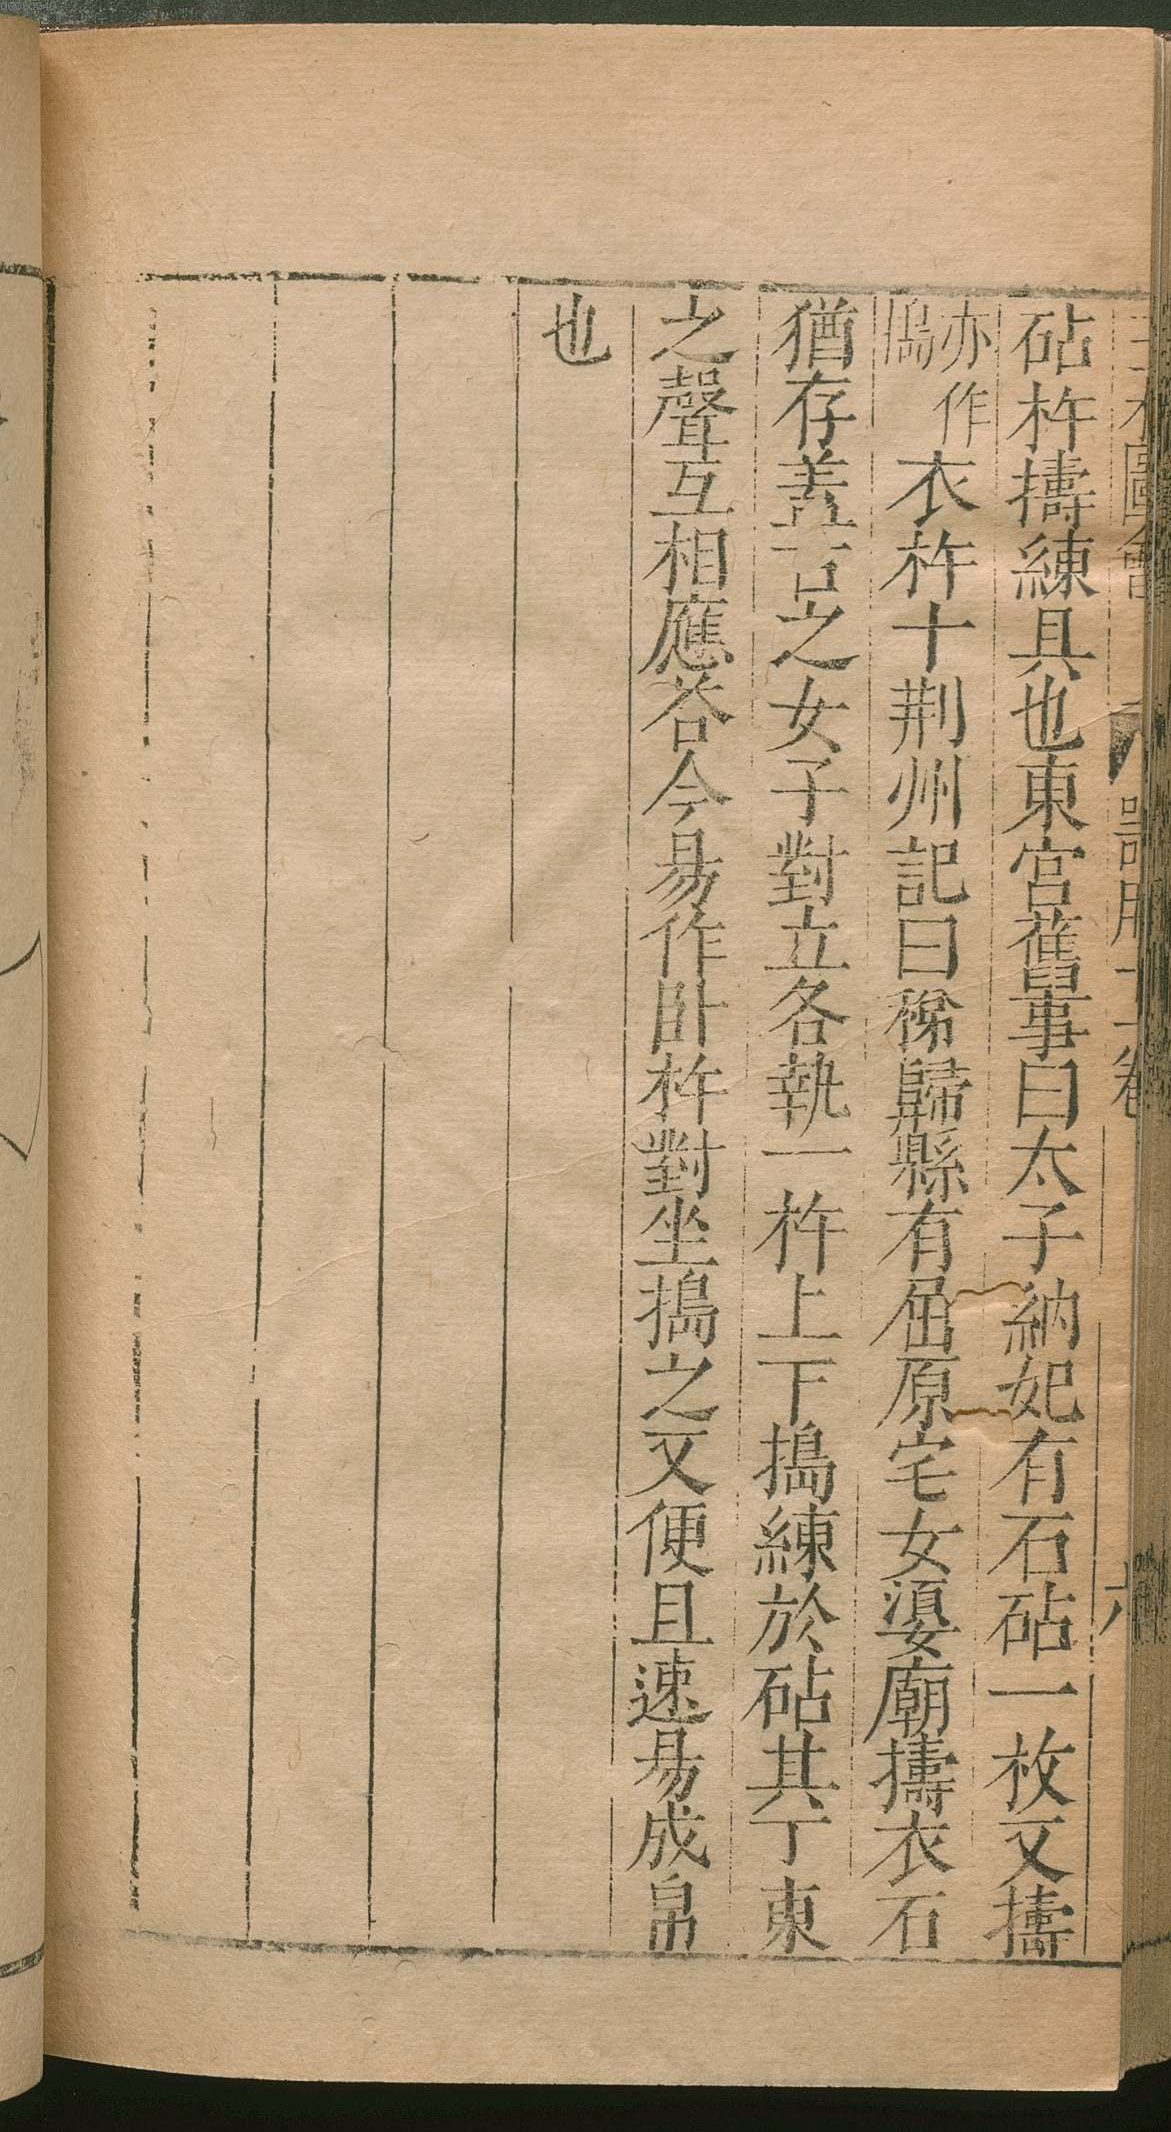 砧杵擣練具也東宮舊事曰太子納妃有石砧一枚又擣
亦作
搗
衣杵十荆州記曰秭歸縣有屈原宅女嬃廟擣衣石
猶存蓋古之女子對立各執一杵上下搗練於砧其丁東
之聲互相應荅今易作卧杵對坐搗之又便且速易成帛
也